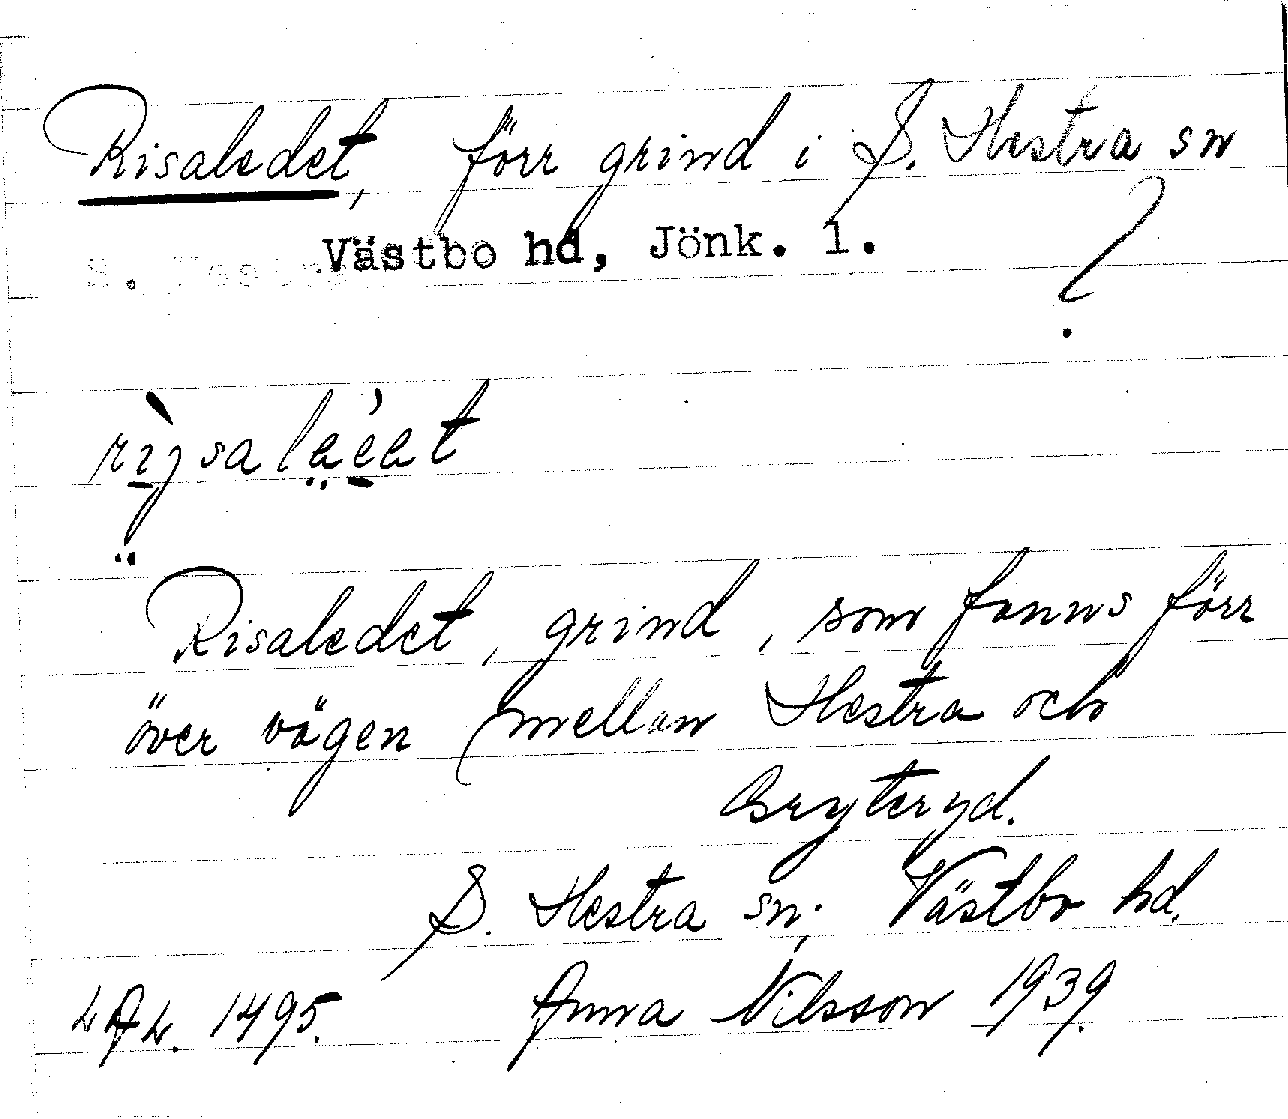 Risaledet, förr grind i S. Hestra sn
Västbo hd, Jönk. l.
?
Risaledet, grind, som fanns förr
över vägen mellan Hestra och
Bryteryd.
S. Hestra sn; Västbo hd.
LAL. 1495. Anna Nilsson 1939.